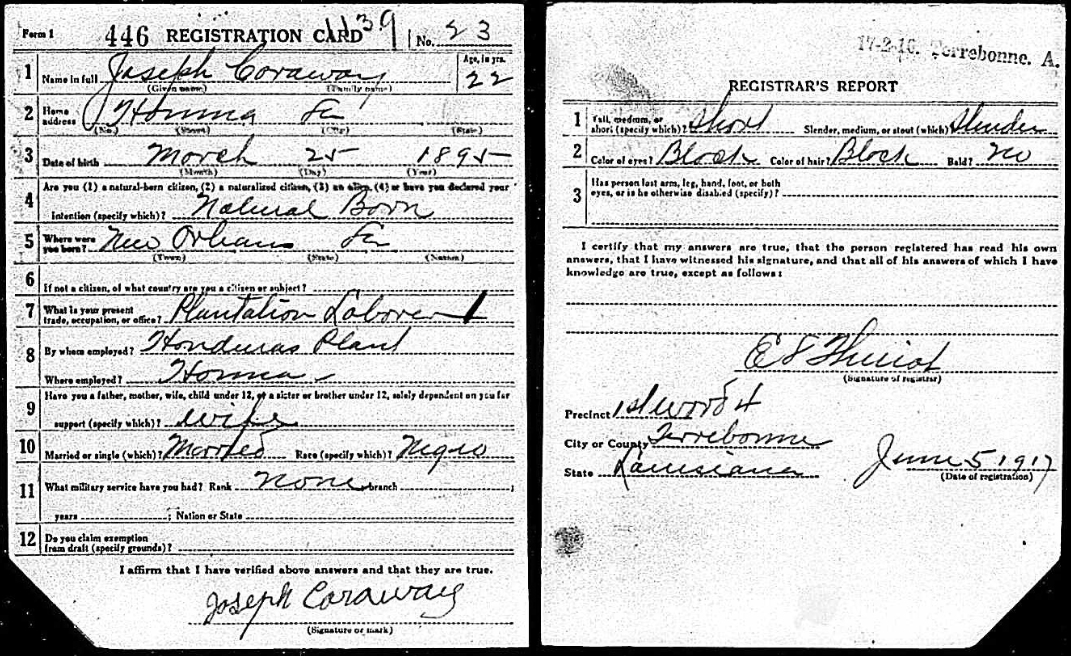 Form 1 446 REGISTRATION CARD 1139 No. 23
1 Joseph Caraway Age, in yrs.
Name in full 22
(Given name) (Family name)
2 Home address Houma La
(No.) (Street) (City) (State)
3 Date of birth March 25 1895
(Month) (Day) (Year)
4 Are you (1) a natural-born citizen, (2) a naturalized citizen, (3) an alien, (4) or have you declared your
intention (specify which)? Natural Born
5 Where were you born? New Orleans La
(Town) (State) (Nation)
6 If not a citizen, of what country are you a citizen or subject?
7 What is your present trade, occupation, or office? Plantation Laborer
8 By whom employed? Honduras Plant
Where employed? Houma
9 Have you a father, mother, wife, child under 12, or a sister or brother under 12, solely dependent on you for
support (specify which)? Wife
10 Married or single (which)? Married Race (specify which)? Negro
11 What military service have you had? Rank None branch ;
years ; Nation or State
12 Do you claim exemption
from draft (specify grounds)?
I affirm that I have verified above answers and that they are true.
Joseph Caraway
(Signature or mark)
17-2-16. Terrebonne. A.
REGISTRAR'S REPORT
1 Tall, medium, or
short (specify which)? Short Slender, medium, or stout (which)? Slender
2 Color of eyes? Black Color of hair? Black Bald? No
3 Has person lost arm, leg, hand, foot, or both
eyes, or is he otherwise disabled (specify)?
I certify that my answers are true, that the person registered has read his own
answers, that I have witnessed his signature, and that all of his answers of which I have
knowledge are true, except as follows:
E S
(Signature of registrar)
Precinct 1st Ward 4
City or County Terrebonne
State Louisiana June 5 1917
(Date of registration)